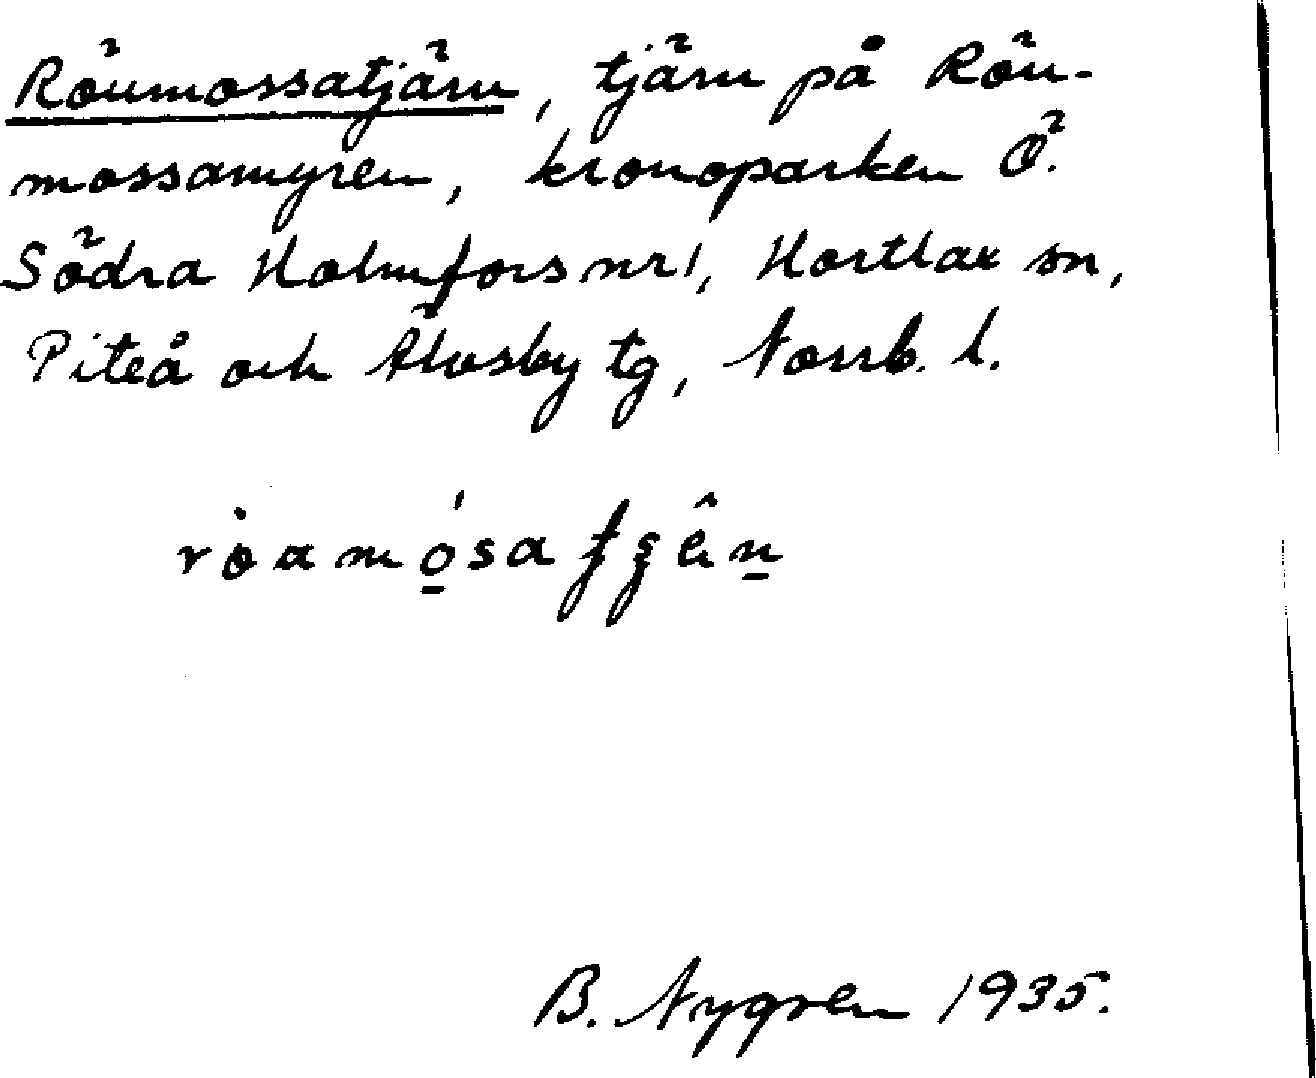 Römmossatjärn, tjärn på Röm-
mossamyren, kronoparken Ö.
Södra Holmfors nr 1, Hortlax sn,
Piteå och Älvsby tg, Norrb. l.
B. Nygren 1935.